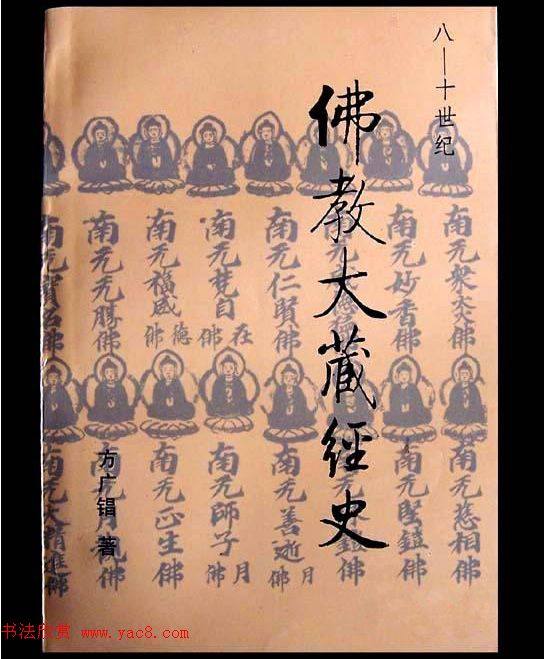 八—十世纪
佛教大藏經史
方广锠 著
南无眾大佛
南无妙香佛
南无仁賢佛
南无梵自在佛
南无福威德佛
南无无勝佛
南无寶名佛
南无慈相佛
南无堅鎧佛
南无善逝月佛
南无師子月佛
南无正生佛
南无大精進佛
书法欣赏 www.yac8.com